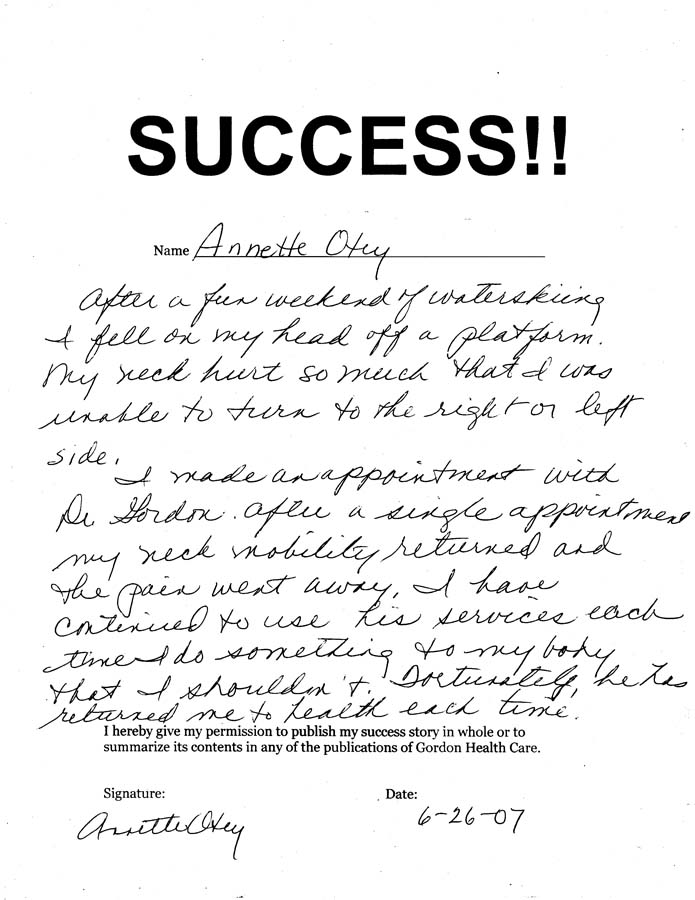 SUCCESS!!
Name Annette Otey
After a fun weekend of waterskiing
I fell on my head off a platform.
My neck hurt so much that I was
unable to turn to the right or left
side.
I made an appointment with
Dr Gordon. After a single appointment
my neck mobility returned and
the pain went away. I have
continued to use his services each
time I do something to my body
that I shouldn't. Fortunately, he has
returned me to health each time.
I hereby give my permission to publish my success story in whole or to
summarize its contents in any of the publications of Gordon Health Care.
Signature: Date:
Annette Otey 6-26-07